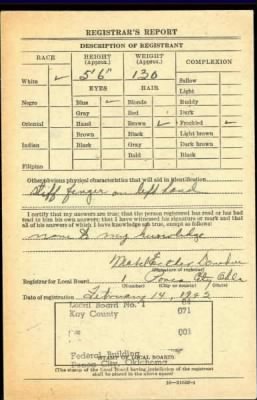 REGISTRAR'S REPORT
DESCRIPTION OF REGISTRANT
RACE HEIGHT (Approx.) WEIGHT (Approx.) COMPLEXION
White ✓ 5' 6" 130 Sallow
EYES HAIR Light
Negro Blue ✓ Blonde Ruddy
Gray Red Dark
Oriental Hazel Brown ✓ Freckled ✓
Brown Black Light brown
Indian Black Gray Dark brown
Bald Black
Filipino
Other obvious physical characteristics that will aid in identification
Stiff finger on left hand
I certify that my answers are true; that the person registered has read or has had
read to him his own answers; that I have witnessed his signature or mark and that
all of his answers of which I have knowledge are true, except as follows:
none to my knowledge
Mabel Esther
(Signature of registrar)
Registrar for Local Board 1 Ponca City Okla
(Number) (City or county) (State)
Date of registration February 14, 1942
Local Board No. 1
Kay County 071
003
Federal Building
Ponca City, Oklahoma
(STAMP OF LOCAL BOARD)
(The stamp of the Local Board having jurisdiction of the registrant
shall be placed in the above space)